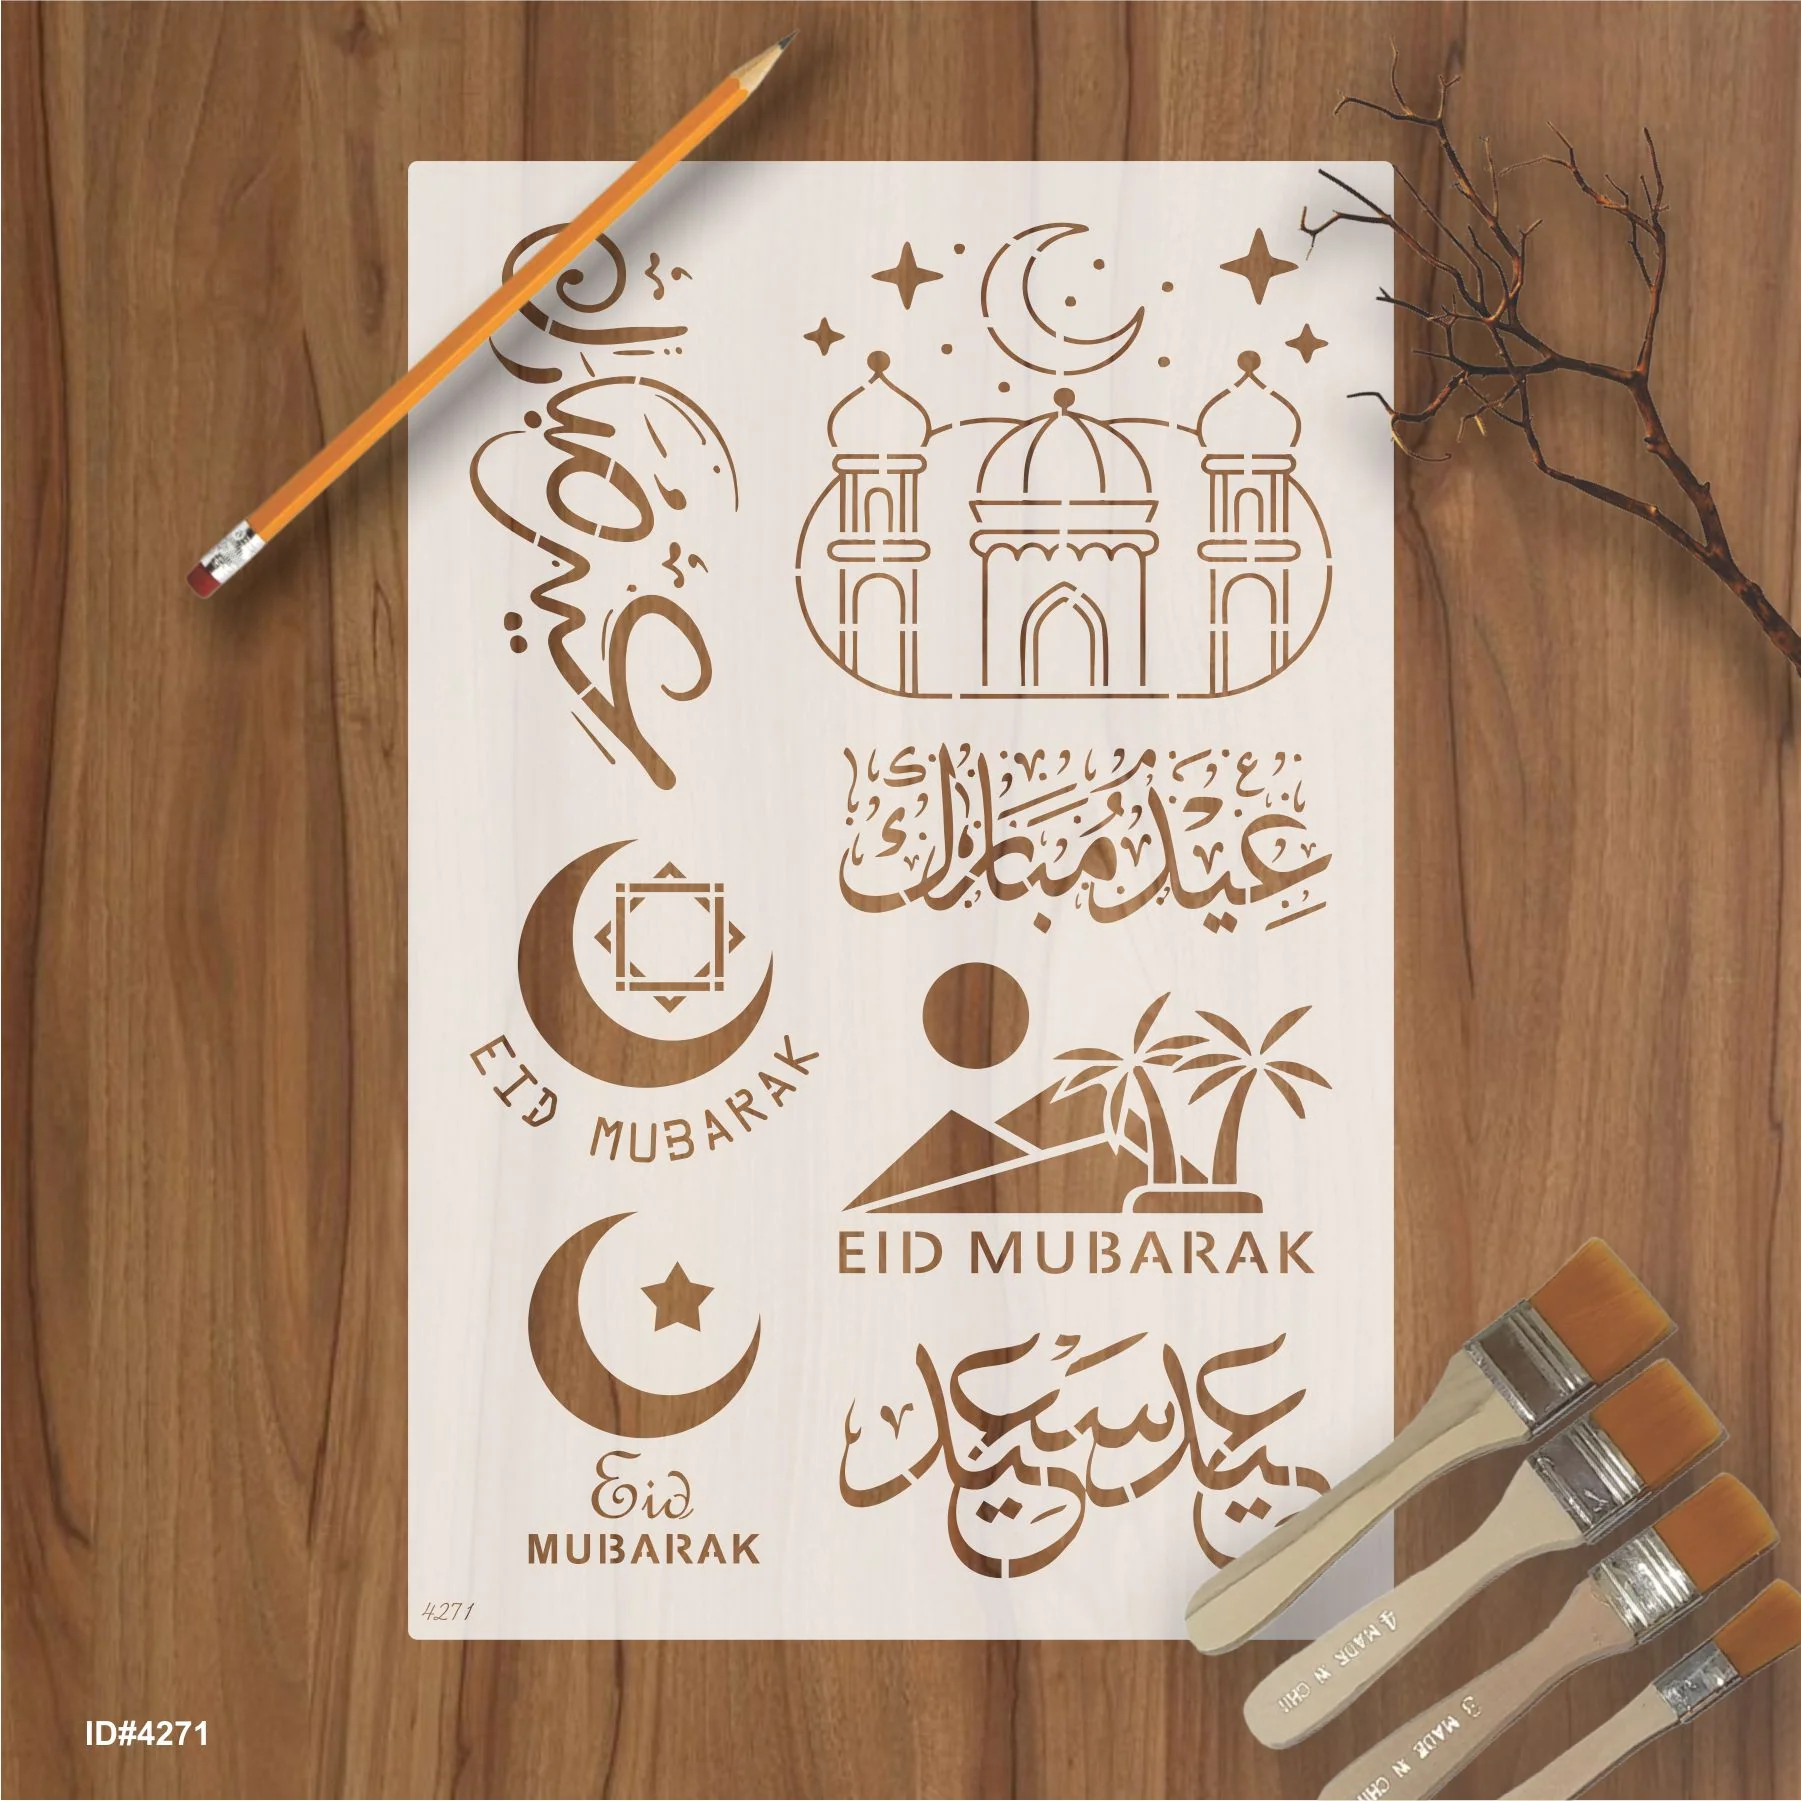 عيد مبارك
عِيدٌ مُبَارَك
EID MUBARAK
EID MUBARAK
عيد سَعيد
Eid
MUBARAK
4271
4 MADE IN CHI
3 MADE IN CHI
ID#4271